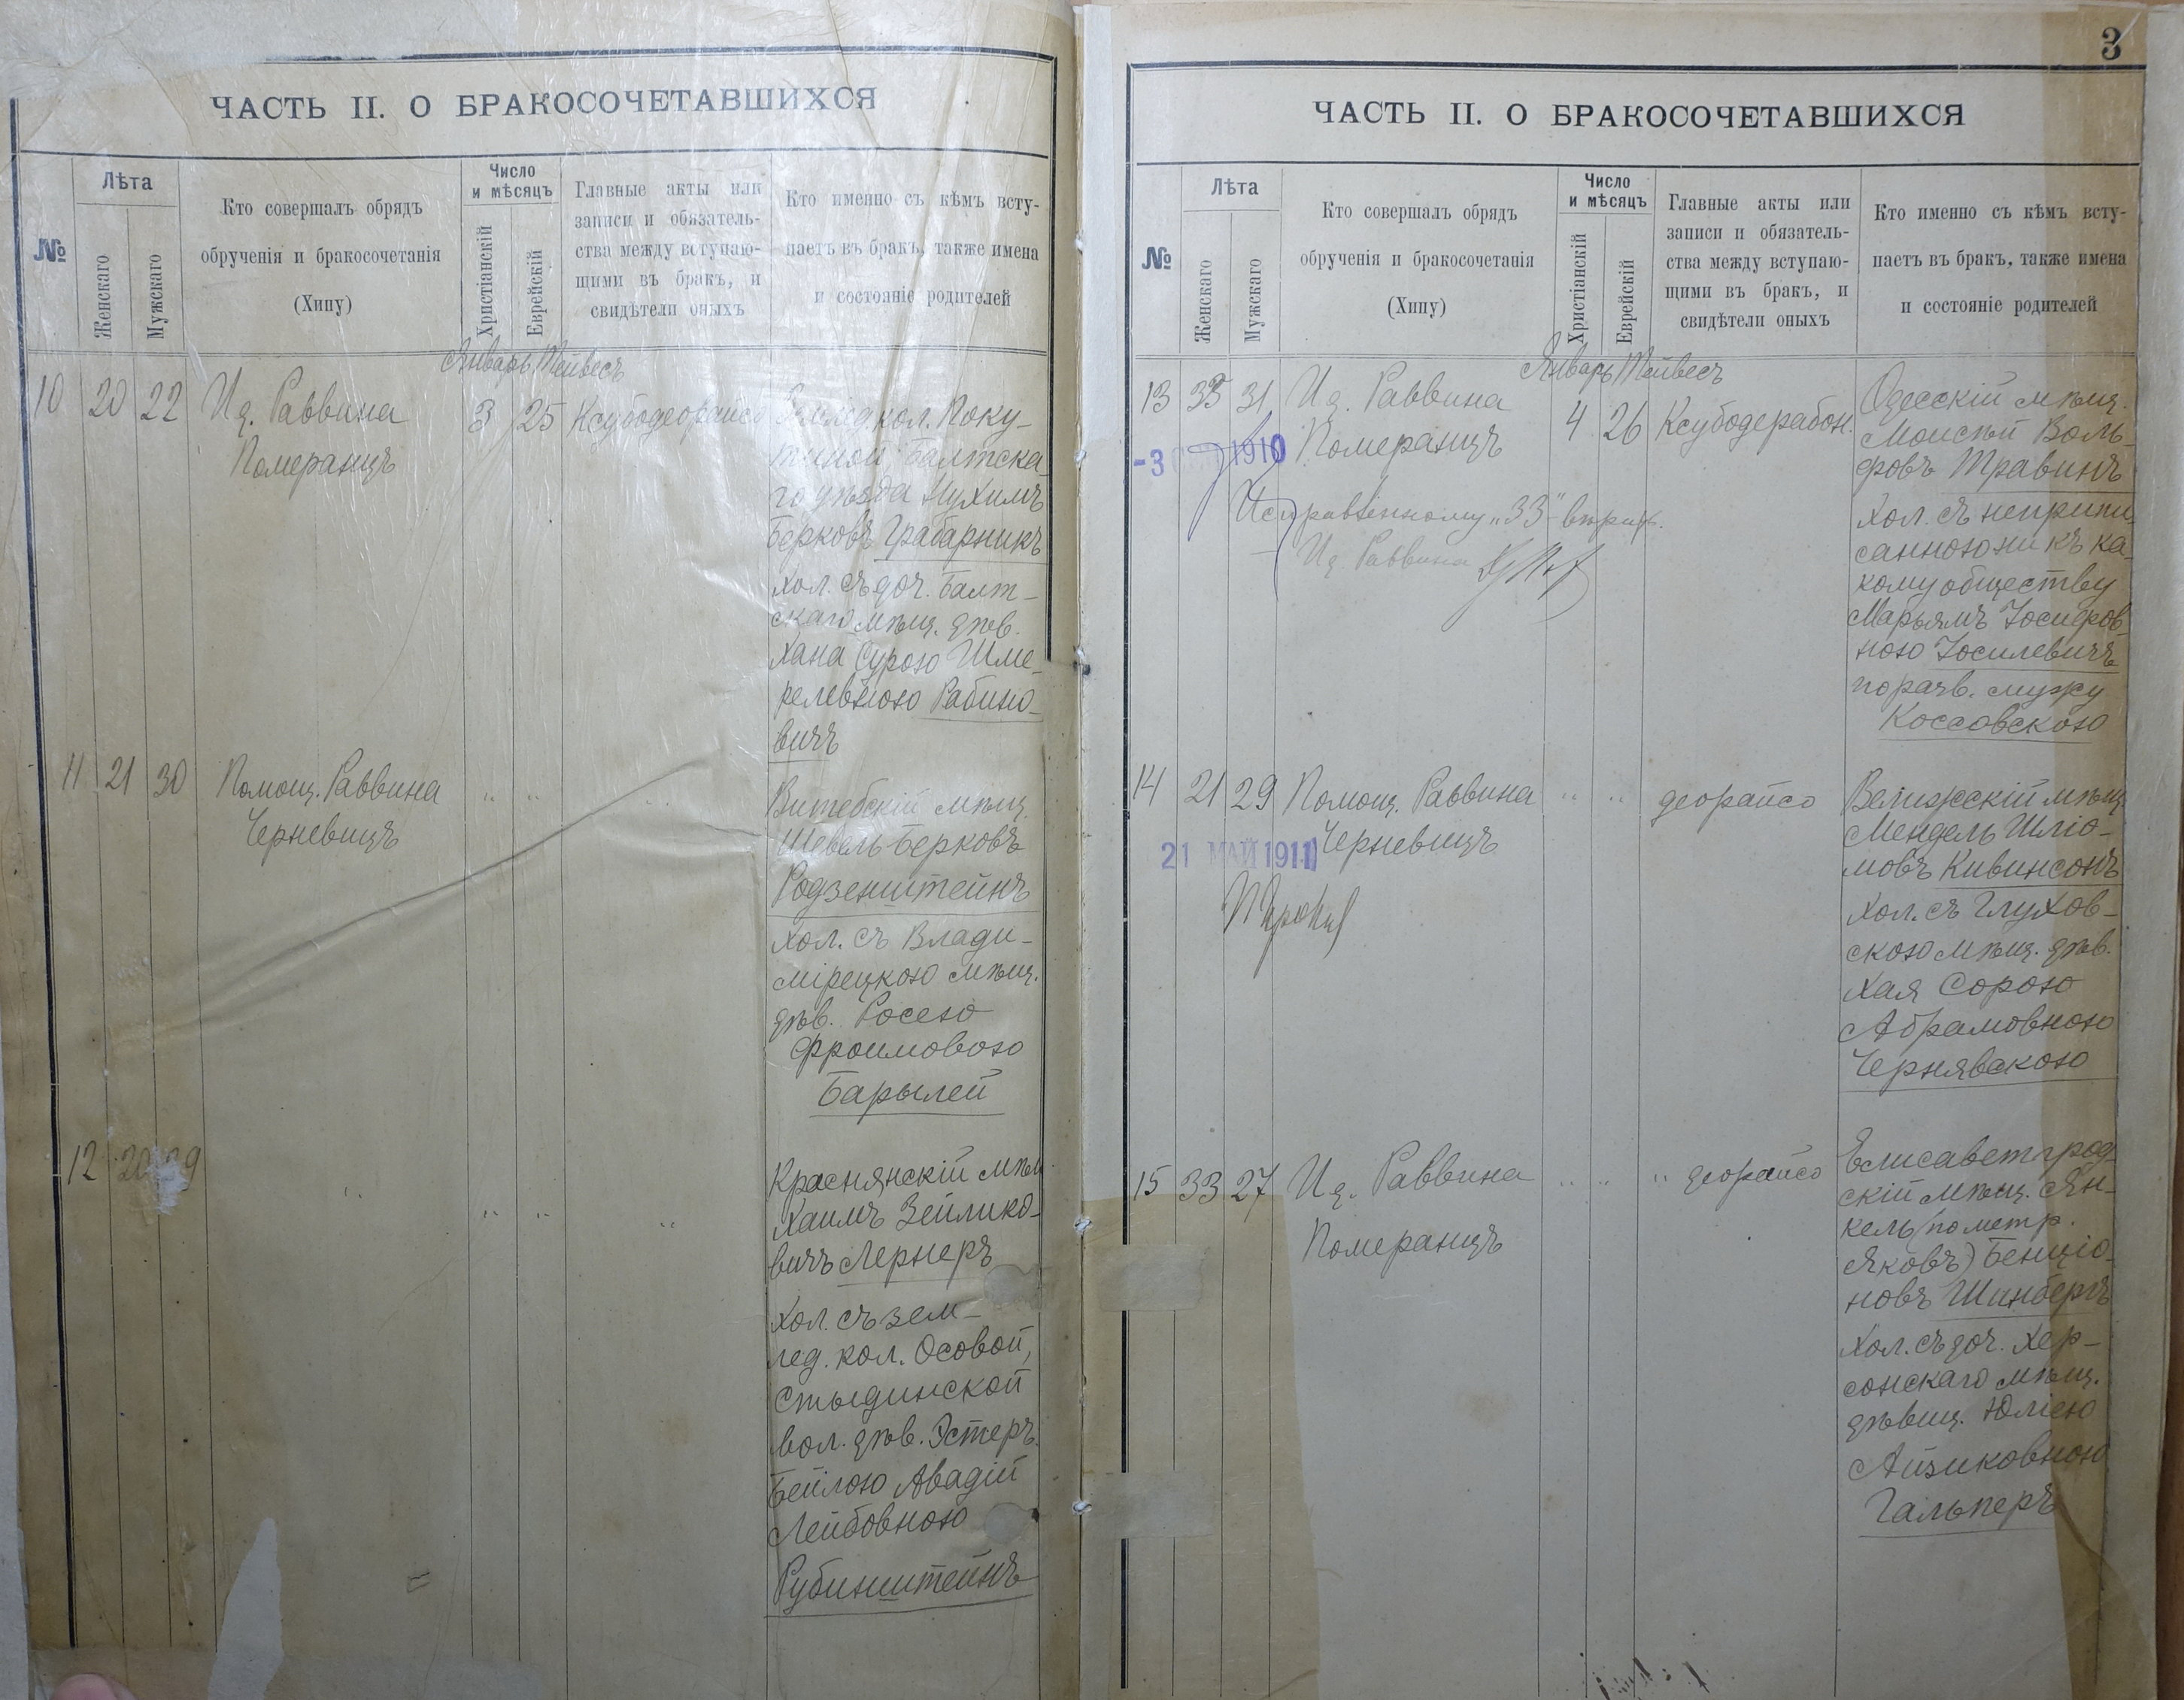 ЧАСТЬ II. О БРАКОСОЧЕТАВШИХСЯ
№
Лѣта
Женскаго
Мужскаго
Кто совершалъ обрядъ
обрученія и бракосочетанія
(Хипу)
Число
и мѣсяцъ
Христіанскій
Еврейскій
Главные акты или
записи и обязатель-
ства между вступаю-
щими въ бракъ, и
свидѣтели оныхъ
Кто именно съ кѣмъ всту-
паетъ въ бракъ, также имена
и состояніе родителей
Январь Тейвесъ
10 20 22 И д. Раввина
Померанцъ
3 25 Ксубодеорайсо
Землед. кол. Поку-
тиной, Балтска-
го уѣзда Нухимъ
Берковъ Грабарникъ
хол. съ доч. Балт-
скаго мѣщ. дѣв.
Хана Сурою Шме-
релевною Рабино-
вичъ
11 21 30 Помощ. Раввина
Черневицъ
" " "
Витебскій мѣщ.
Шевель Берковъ
Родзенштейнъ
хол. съ Влади-
мірецкою мѣщ.
дѣв. Росею
Фроимовою
Барылей
12 20 29 " " " "
Краснянскій мѣщ
Хаимъ Зейлико-
вичъ Лернеръ
хол. съ зем-
лед. кол. Осовой,
Стыдинской
вол. дѣв. Эстеръ
Бейлою Авадій
Лейбовною
Рубинштейнъ
3
ЧАСТЬ II. О БРАКОСОЧЕТАВШИХСЯ
№
Лѣта
Женскаго
Мужскаго
Кто совершалъ обрядъ
обрученія и бракосочетанія
(Хипу)
Число
и мѣсяцъ
Христіанскій
Еврейскій
Главные акты или
записи и обязатель-
ства между вступаю-
щими въ бракъ, и
свидѣтели оныхъ
Кто именно съ кѣмъ всту-
паетъ въ бракъ, также имена
и состояніе родителей
Январь Тейвесъ
13 33 31 И д. Раввина
Померанцъ
4 26 Ксубодерабон.
-3 1910
Исправленному "33" вѣрить.
И д Раввина
Одесскій мѣщ.
Моисѣй Воль-
фовъ Травинъ
хол. съ непріпи-
санною ни къ ка-
кому обществу
Марьямъ Іосифов-
ною Іосилевичъ
по разв. мужу
Коссовскою
14 21 29 Помощ. Раввина
Черневицъ
" " деорайсо
21 МАЙ 1911
Велижскій мѣщ.
Мендель Шліо-
мовъ Кивинсонъ
хол. съ Глухов-
скою мѣщ. дѣв.
Хая Сорою
Абрамовною
Чернявскою
15 33 27 И д. Раввина
Померанцъ
" " " деорайсо
Елисаветград-
скій мѣщ. Ян-
кель (по метр.
Яковъ) Бенціо-
новъ Шинбергъ
хол. съ доч. Хер-
сонскаго мѣщ.
дѣвиц. Юліею
Айзиковною
Гальперъ